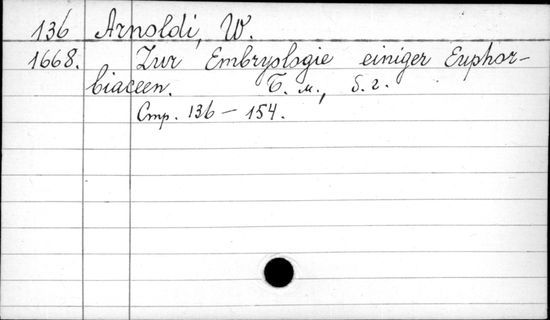 136 Arnoldi, W.
1668. Zur Embryologie einiger Euphor-
biaceen. Б. м., б. г.
Стр. 136 — 154.